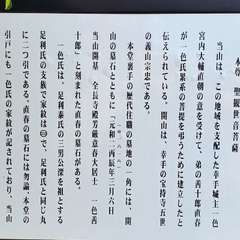 本尊 聖観世音菩薩
当山は、この地域を支配した幸手城主一色
宮内大輔直朝の意を受けて、弟の善十郎直春
が一色氏累系の菩提を弔うために建立したと
伝えられている。開山は、幸手の宝持寺五世
の義山宗忠である。
本堂裏手の歴代住職の墓地の一角には、開
山の墓石とともに「元和二丙辰年三月六日
当山開基 全長寺殿芳厳意春大居士 一色善
十郎」と刻まれた直春の墓石がある。
一色氏は、足利泰氏の三男公深を祖とする
足利氏の支族で家紋は、足利氏と同じ丸
に二つ引である。直春の墓石には勿論、本堂の
引戸にも一色氏の家紋が記されており、当山